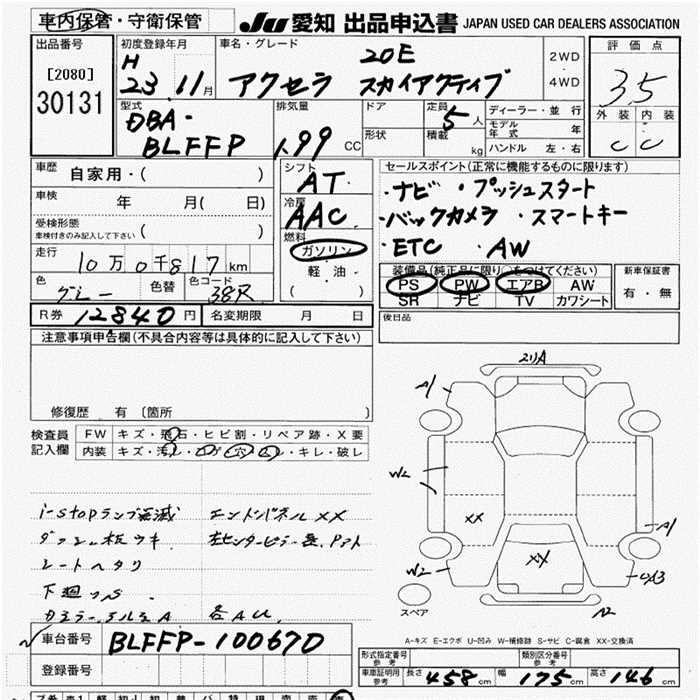 車内保管・守衛保管
JU 愛知 出品申込書 JAPAN USED CAR DEALERS ASSOCIATION
出品番号
[2080]
30131
初度登録年月
H
23. 11 月
車名・グレード
20E
アクセラ スカイアクティブ
2WD
・
4WD
評価点
3.5
外装 内装
C C
型式
DBA-
BLFFP
排気量
1.99 CC
ドア
形状
定員
5 人
積載 kg
ディーラー・並行
モデル年式 年
ハンドル 左・右
車歴 自家用・( )
車検 年 月( 日)
受検形態
車検付きのみ記入して下さい ( )
走行
10万0千817 km
色 グレー 色替 色コード 38R
シフト
AT
冷房
AAC
燃料
ガソリン
軽油・
( )
セールスポイント(正常に機能するものに限ります)
・ナビ ・プッシュスタート
・バックカメラ ・スマートキー
・ETC ・AW
装備品(純正品に限り○をつけてください)
PS PW エアB AW
SR ナビ TV カワシート
新車保証書
有・無
R券 12840 円 名変期限 月 日
後日品
注意事項申告欄(不具合内容等は具体的に記入して下さい)
修復歴 有 〔箇所 〕
検査員
記入欄
FW キズ・飛石・ヒビ割・リペア跡・X要
内装 キズ・汚れ・コゲ・穴・ムレ・キレ・破レ
i-stopランプ点滅 エンドパネルXX
ダッシュ板ウキ
シートヘタリ
下廻り S
各AU
車台番号 BLFFP-100670
登録番号
A1
W2
XX
W2
XX
A1
スペア
A-キズ E-エクボ U-凹み W-補修跡 S-サビ C-腐食 XX-交換済
形式指定番号
参考
類別区分番号
参考
車庫証明用
参考
長さ 458 cm 幅 175 cm 高さ 146 cm